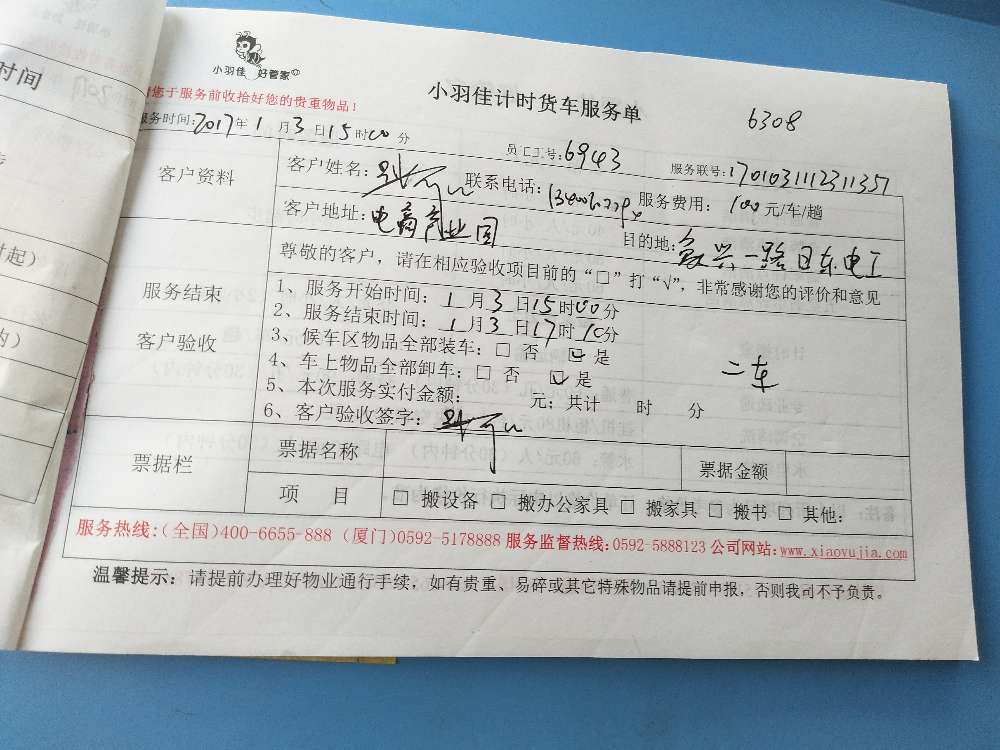 时间
起）
内）
小羽佳 好管家
小羽佳计时货车服务单
6308
您于服务前收拾好您的贵重物品！
服务时间：2017年1月3日15时00分
员工工号：6943
服务联号：1701031112311351
客户资料
客户姓名：
联系电话：
服务费用：100元/车/趟
客户地址：电商产业园
目的地：复兴一路日东电工
尊敬的客户，请在相应验收项目前的“□”打“√”，非常感谢您的评价和意见
服务结束
客户验收
1、服务开始时间：1月3日15时00分
2、服务结束时间：1月3日17时10分
3、候车区物品全部装车：□ 否 ☑ 是
4、车上物品全部卸车：□ 否 ☑ 是
二车
5、本次服务实付金额： 元；共计 时 分
6、客户验收签字：
票据栏
票据名称
票据金额
项 目
□ 搬设备 □ 搬办公家具 □ 搬家具 □ 搬书 □ 其他：
服务热线：(全国)400-6655-888 (厦门)0592-5178888 服务监督热线：0592-5888123 公司网站：www.xiaoyujia.com
温馨提示：请提前办理好物业通行手续，如有贵重、易碎或其它特殊物品请提前申报，否则我司不予负责。